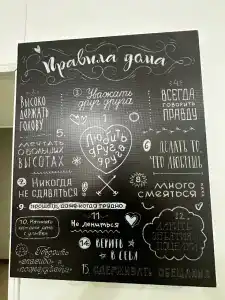 Правила дома
1
Уважать
друг друга
Высоко
держать
голову
4
Всегда
говорить
правду
5.
Мечтать
о больших
высотах
Любить
друг
друга
6
Делать то,
что любишь
7.
Никогда
не сдаваться
8
Много
смеяться
9
даже когда трудно
10. Начинать
каждый день
с улыбки
11
Не лениться
12.
Говорить
«спасибо» и
«пожалуйста»
14
Верить
в себя
15 Сдерживать обещания